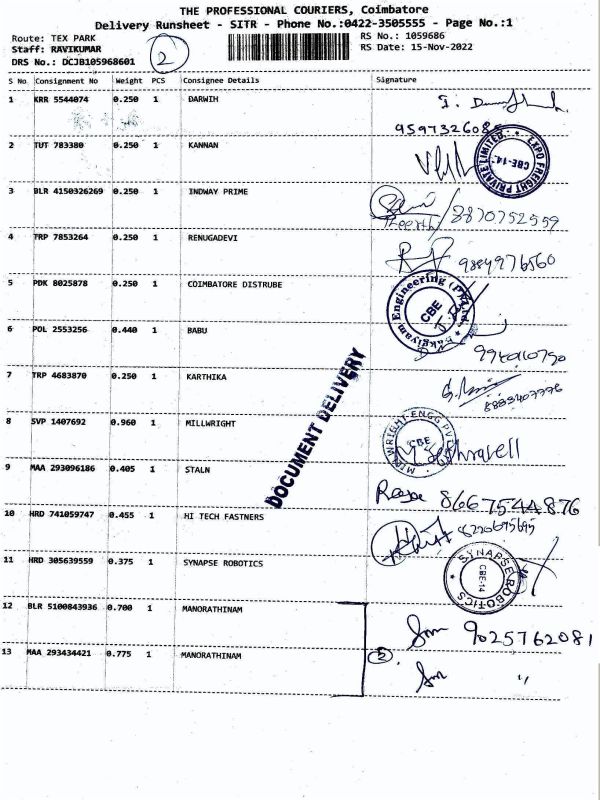 THE PROFESSIONAL COURIERS, Coimbatore
Delivery Runsheet - SITR - Phone No.:0422-3505555 - Page No.:1
Route: TEX PARK
RS No.: 1059686
Staff: RAVIKUMAR
RS Date: 15-Nov-2022
DRS No.: DCJB105968601
2
S No Consignment No Weight PCS Consignee Details Signature
1 KRR 5544074 0.250 1 DARWIH
2 TUT 783380 0.250 1 KANNAN
EXPO FREIGHT PRIVATE LIMITED. CBE-14.
3 BLR 4150326269 0.250 1 INDWAY PRIME
8870752559
4 TRP 7853264 0.250 1 RENUGADEVI
9884976560
5 PDK 8025878 0.250 1 COIMBATORE DISTRUBE
Bakgiyam Engineering (P) Ltd. CBE
6 POL 2553256 0.440 1 BABU
7 TRP 4683870 0.250 1 KARTHIKA
DOCUMENT DELIVERY
8 SVP 1407692 0.960 1 MILLWRIGHT
MILLWRIGHT ENGG PVT CBE
9 MAA 293096186 0.405 1 STALN
8667544876
10 HRD 741059747 0.455 1 HI TECH FASTNERS
8220695695
11 HRD 305639559 0.375 1 SYNAPSE ROBOTICS
SYNAPSE ROBOTICS CBE-14
12 BLR 5100843936 0.700 1 MANORATHINAM
9025762081
13 MAA 293434421 0.775 1 MANORATHINAM
2
"